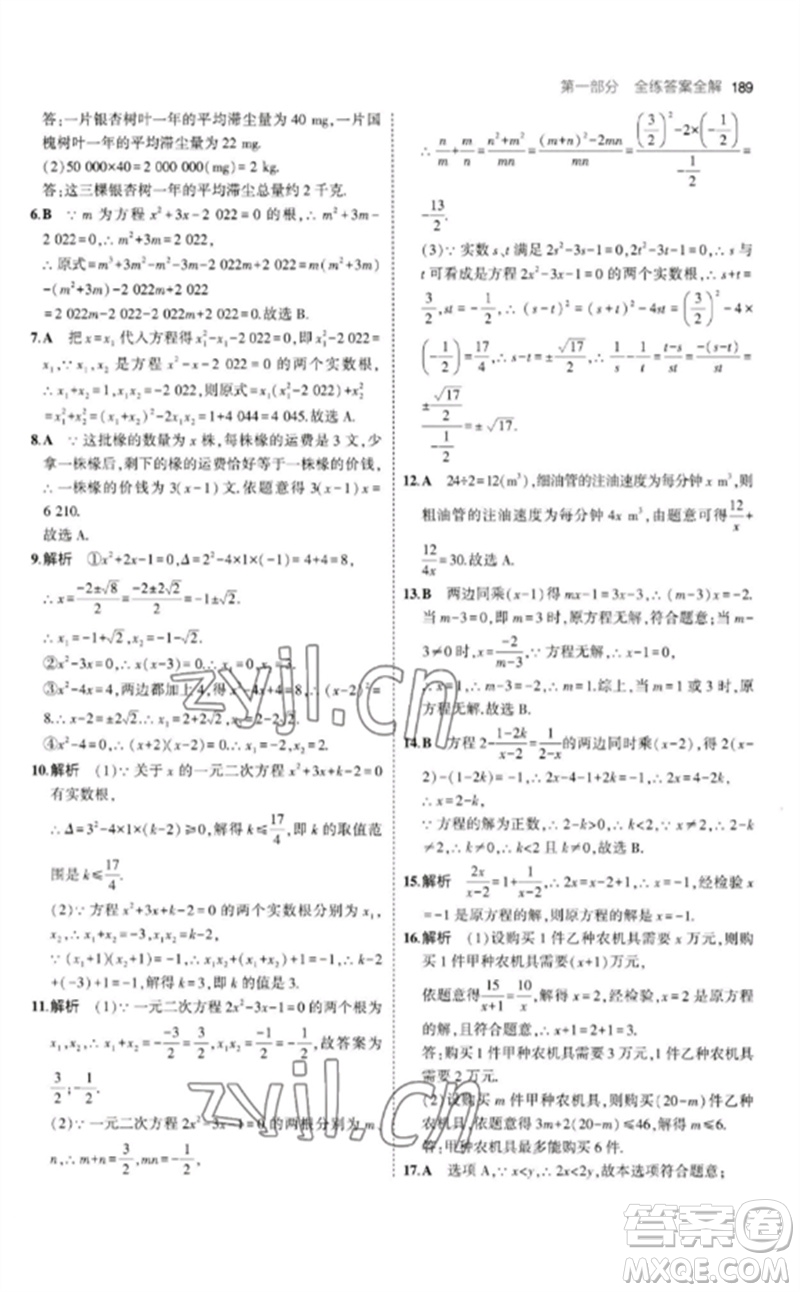 第一部分 全练答案全解 189
答:一片银杏树叶一年的平均滞尘量为 40 mg,一片国
槐树叶一年的平均滞尘量为 22 mg.
(2)50 000×40=2 000 000(mg)=2 kg.
答:这三棵银杏树一年的平均滞尘总量约 2 千克.
6.B ∵ m 为方程 x²+3x-2 022=0 的根,∴ m²+3m-
2 022=0,∴ m²+3m=2 022,
∴ 原式=m³+3m²-m²-3m-2 022m+2 022=m(m²+3m)
-(m²+3m)-2 022m+2 022
=2 022m-2 022-2 022m+2 022=0.故选 B.
7.A 把 x=x₁ 代入方程得 x₁²-x₁-2 022=0,即 x₁²-2 022=
x₁.∵ x₁,x₂ 是方程 x²-x-2 022=0 的两个实数根,
∴ x₁+x₂=1,x₁x₂=-2 022,则原式=x₁(x₁²-2 022)+x₂²
=x₁²+x₂²=(x₁+x₂)²-2x₁x₂=1+4 044=4 045.故选 A.
8.A ∵ 这批椽的数量为 x 株,每株椽的运费是 3 文,少
拿一株椽后,剩下的椽的运费恰好等于一株椽的价钱,
∴ 一株椽的价钱为 3(x-1)文.依题意得 3(x-1)x=
6 210.
故选 A.
9.解析 ①x²+2x-1=0,Δ=2²-4×1×(-1)=4+4=8,
∴ x=(-2±√8)/2=(-2±2√2)/2=-1±√2.
∴ x₁=-1+√2,x₂=-1-√2.
②x²-3x=0,∴ x(x-3)=0,∴ x₁=0,x₂=3.
③x²-4x=4,两边都加上 4,得 x²-4x+4=8,∴ (x-2)²=
8.∴ x-2=±2√2.∴ x₁=2+2√2,x₂=2-2√2.
④x²-4=0,∴ (x+2)(x-2)=0,∴ x₁=-2,x₂=2.
10.解析 (1)∵ 关于 x 的一元二次方程 x²+3x+k-2=0
有实数根,
∴ Δ=3²-4×1×(k-2)≥0,解得 k≤17/4,即 k 的取值范
围是 k≤17/4.
(2)∵ 方程 x²+3x+k-2=0 的两个实数根分别为 x₁,
x₂,∴ x₁+x₂=-3,x₁x₂=k-2.
∵ (x₁+1)(x₂+1)=-1,∴ x₁x₂+(x₁+x₂)+1=-1,∴ k-
2+(-3)+1=-1,解得 k=3,即 k 的值是 3.
11.解析 (1)∵ 一元二次方程 2x²-3x-1=0 的两个根为
x₁,x₂,∴ x₁+x₂=-(-3)/2=3/2,x₁x₂=(-1)/2=-1/2,故答案为
3/2;-1/2.
(2)∵ 一元二次方程 2x²-3x-1=0 的两根分别为 m、
n,∴ m+n=3/2,mn=-1/2,
∴ n/m+m/n=(n²+m²)/mn=((m+n)²-2mn)/mn=((3/2)²-2×(-1/2))/(-1/2)=
-13/2.
(3)∵ 实数 s、t 满足 2s²-3s-1=0,2t²-3t-1=0,∴ s 与
t 可看成是方程 2x²-3x-1=0 的两个实数根,∴ s+t=
3/2,st=-1/2,∴ (s-t)²=(s+t)²-4st=(3/2)²-4×
(-1/2)=17/4,∴ s-t=±√17/2,∴ 1/s-1/t=(t-s)/st=-(s-t)/st=
(±√17/2)/(-1/2)=±√17.
12.A 24÷2=12(m³),细油管的注油速度为每分钟 x m³,则
粗油管的注油速度为每分钟 4x m³,依题意可得 12/x+
12/4x=30.故选 A.
13.B 两边同乘(x-1)得 mx-1=3x-3,∴ (m-3)x=-2.
当 m-3=0,即 m=3 时,原方程无解,符合题意;当 m-
3≠0 时,可得 x=-2/(m-3),∵ 方程无解,∴ x-1=0,
∴ x=1.∴ m-3=-2,∴ m=1.综上,当 m=1 或 3 时,原
方程无解.故选 B.
14.B 方程 2-(1-2k)/(x-2)=1/(2-x)的两边同时乘(x-2),得 2(x-
2)-(1-2k)=-1,∴ 2x-4-1+2k=-1,∴ 2x=4-2k,
∴ x=2-k.
∵ 方程的解为正数,∴ 2-k>0,∴ k<2,∵ x≠2,∴ 2-
k≠2,∴ k≠0,∴ k<2 且 k≠0.故选 B.
15.解析 2x/(x-2)=1+1/(x-2),∴ 2x=x-2+1,∴ x=-1,经检验 x
=-1 是原方程的解,则原方程的解为 x=-1.
16.解析 (1)设购买 1 件乙种农机具需要 x 万元,则购
买 1 件甲种农机具需要(x+1)万元,
依题意得 15/(x+1)=10/x,解得 x=2,经检验,x=2 是原方程
的解,且符合题意,∴ x+1=2+1=3.
答:购买 1 件甲种农机具需要 3 万元,1 件乙种农机具
需要 2 万元.
(2)设购买 m 件甲种农机具,则购买(20-m)件乙种
农机具,依题意得 3m+2(20-m)≤46,解得 m≤6.
答:甲种农机具最多能购买 6 件.
17.A 选项 A,∵ x<y,∴ 2x<2y,故本选项符合题意;
zyjl.cn
zyjl.cn
答案圈